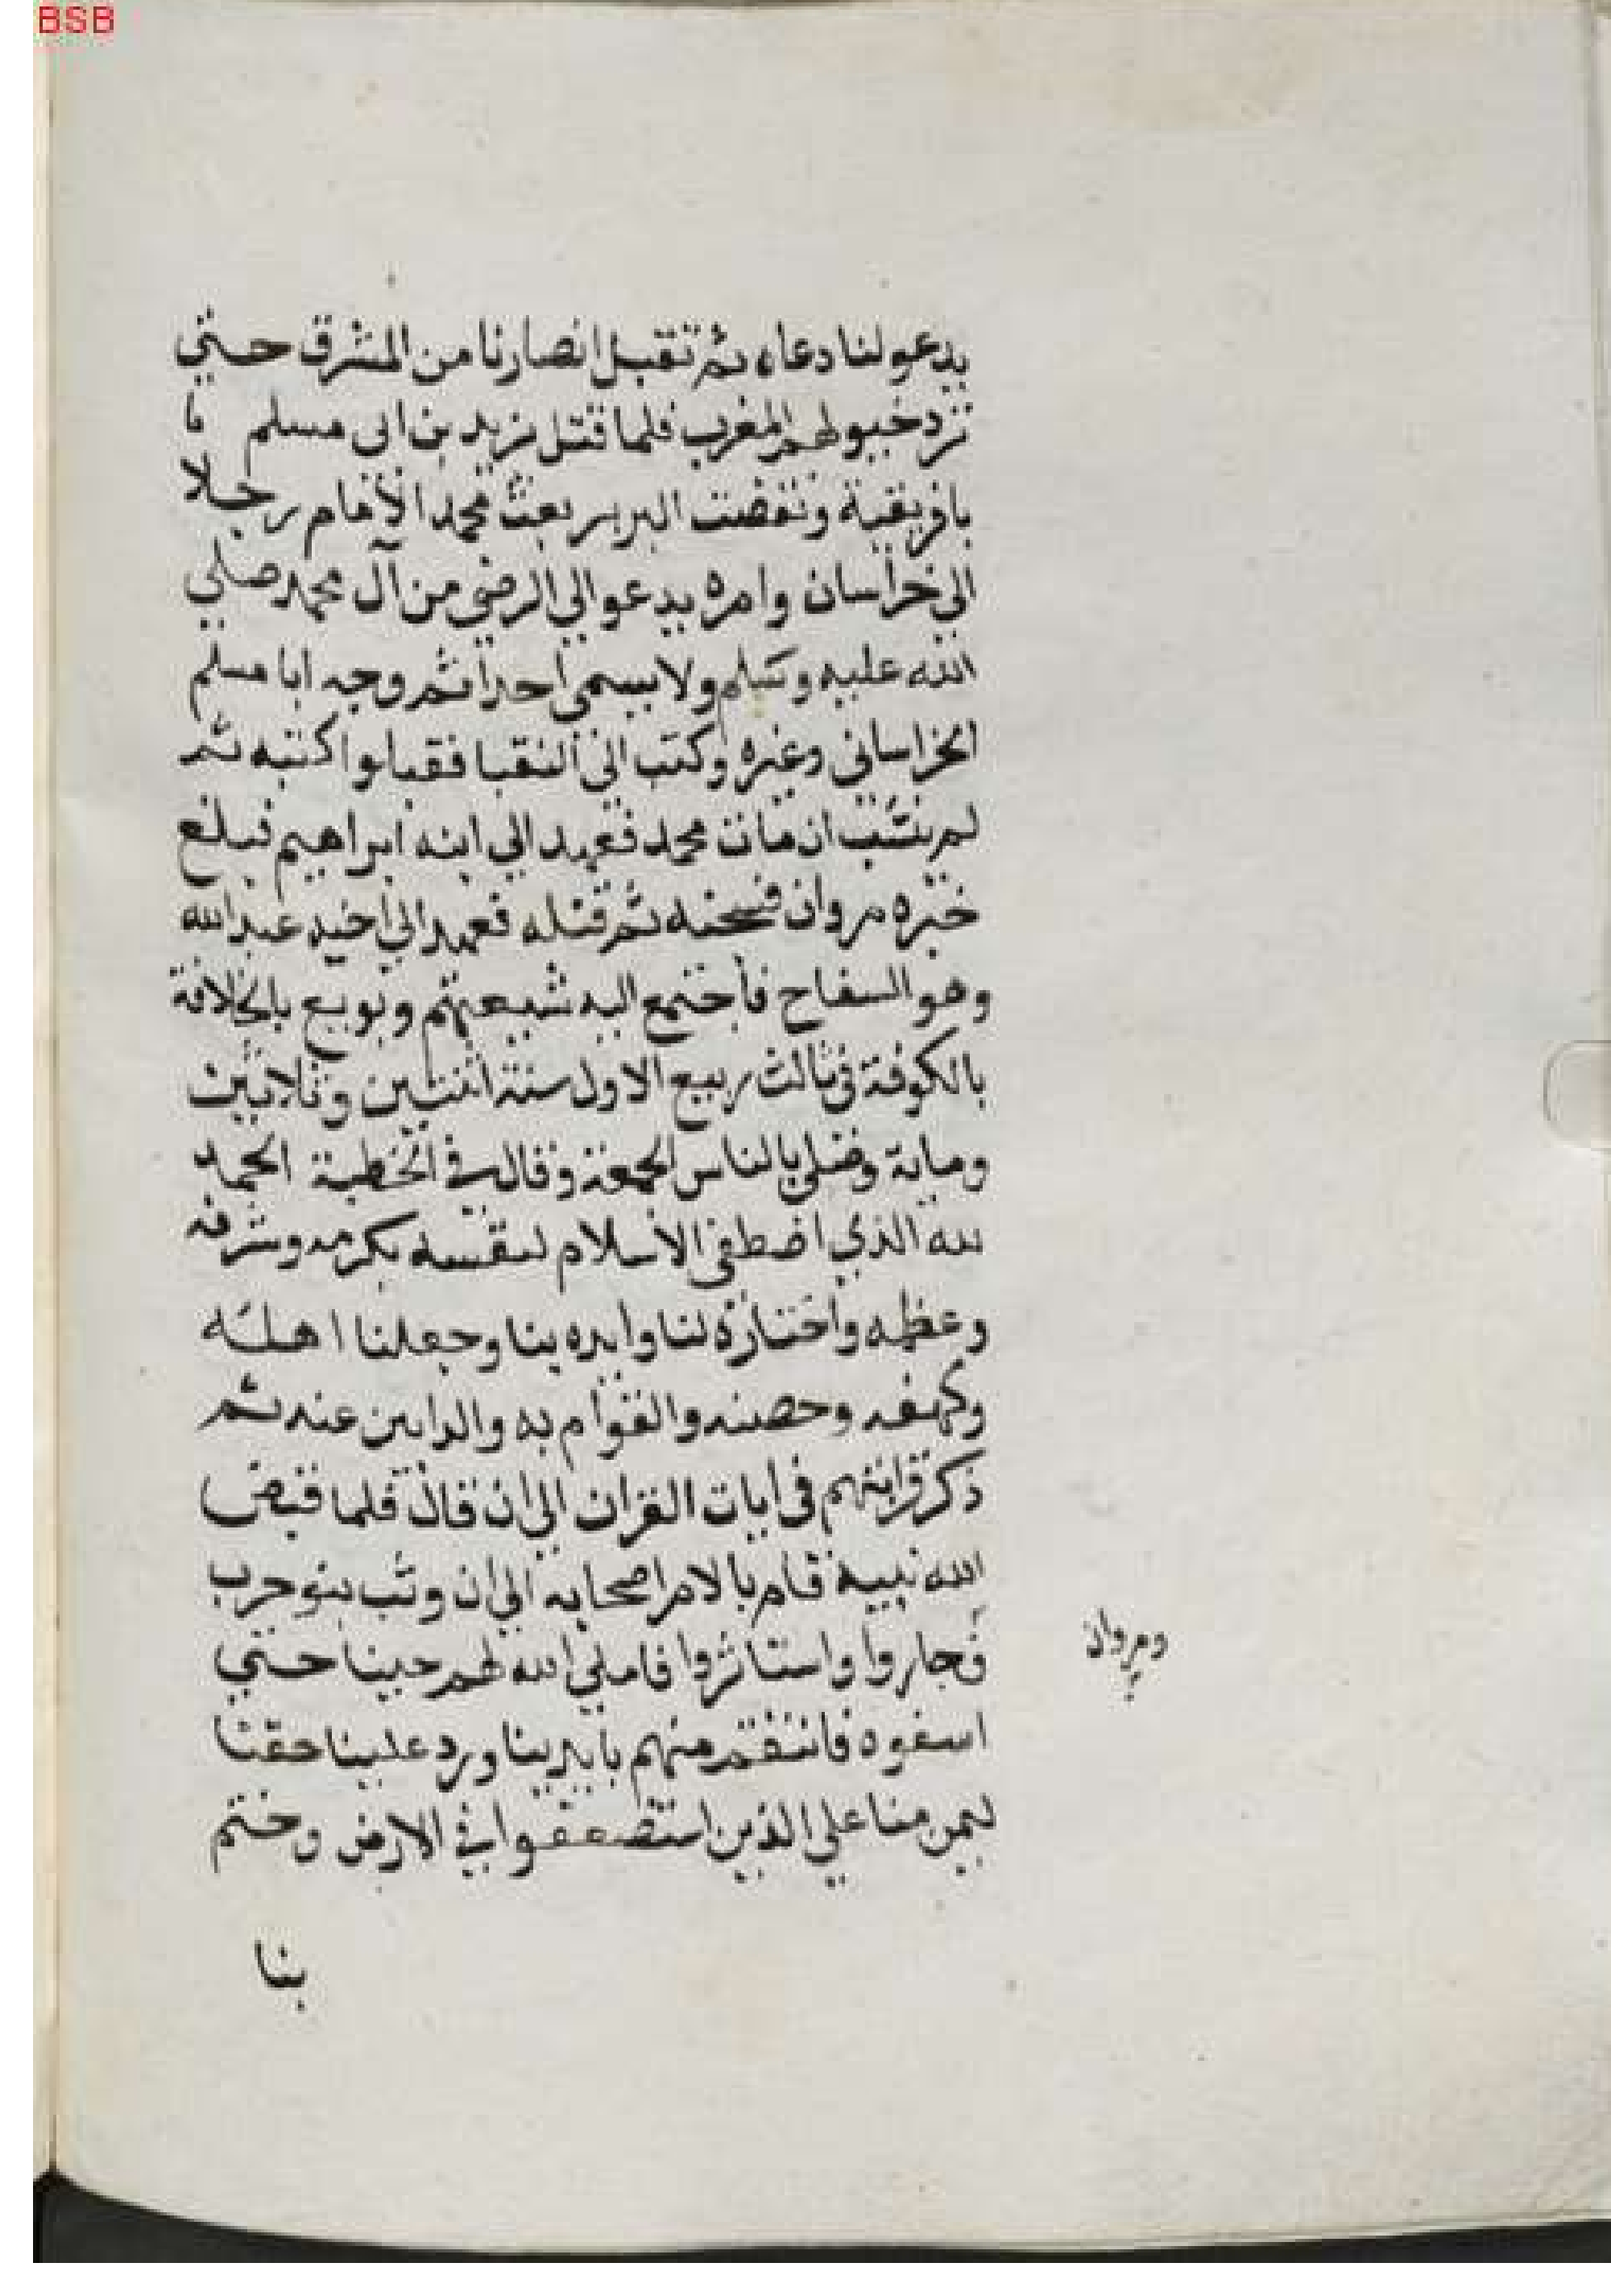 BSB
يدعو لنا دعاه ثم تقبل انصارنا من المشرق حتي
ترد خيولهم المغرب فلما قتل يزيد بن ابى مسلم
بافريقية ونقضت البربر بعث محمد الامام رجلا
الي خراسان وامره يدعو الي الرضي من آل محمد صلي
الله عليه وسلم ولا يسمي احدا ثم وجه ابا مسلم
الخراساني وغيره وكتب الي النقبا فقبلوا كتبه ثم
لم ينشب ان مات محمد فعهد الي ابنه ابراهيم فبلغ
خبره مروان فسجنه ثم قتله فعهد الي اخيه عبد الله
وهو السفاح فاجتمع اليه شيعتهم وبويع بالخلافة
بالكوفة في ثالث ربيع الاول سنة اثنتين وثلاثين
وماية وصلي بالناس الجمعة وقال في الخطبة الحمد
لله الذي اصطفي الاسلام لنفسه بكرمه وشرفه
وعظمه واختاره لنا وايده بنا وجعلنا اهله
وكهفه وحصنه والقوام به والذابين عنه ثم
ذكر قرابتهم في ايات القران الي ان قال فلما قبض
الله نبيه قام بالامر اصحابه الي ان وثب بنو حرب
ومروان
فجاروا واستاثروا فاملي الله لهم حينا حتي
اسفوه فانتقم منهم بايدينا ورد علينا حقنا
ليمن منا علي الذين استضعفوا في الارض وختم
بنا